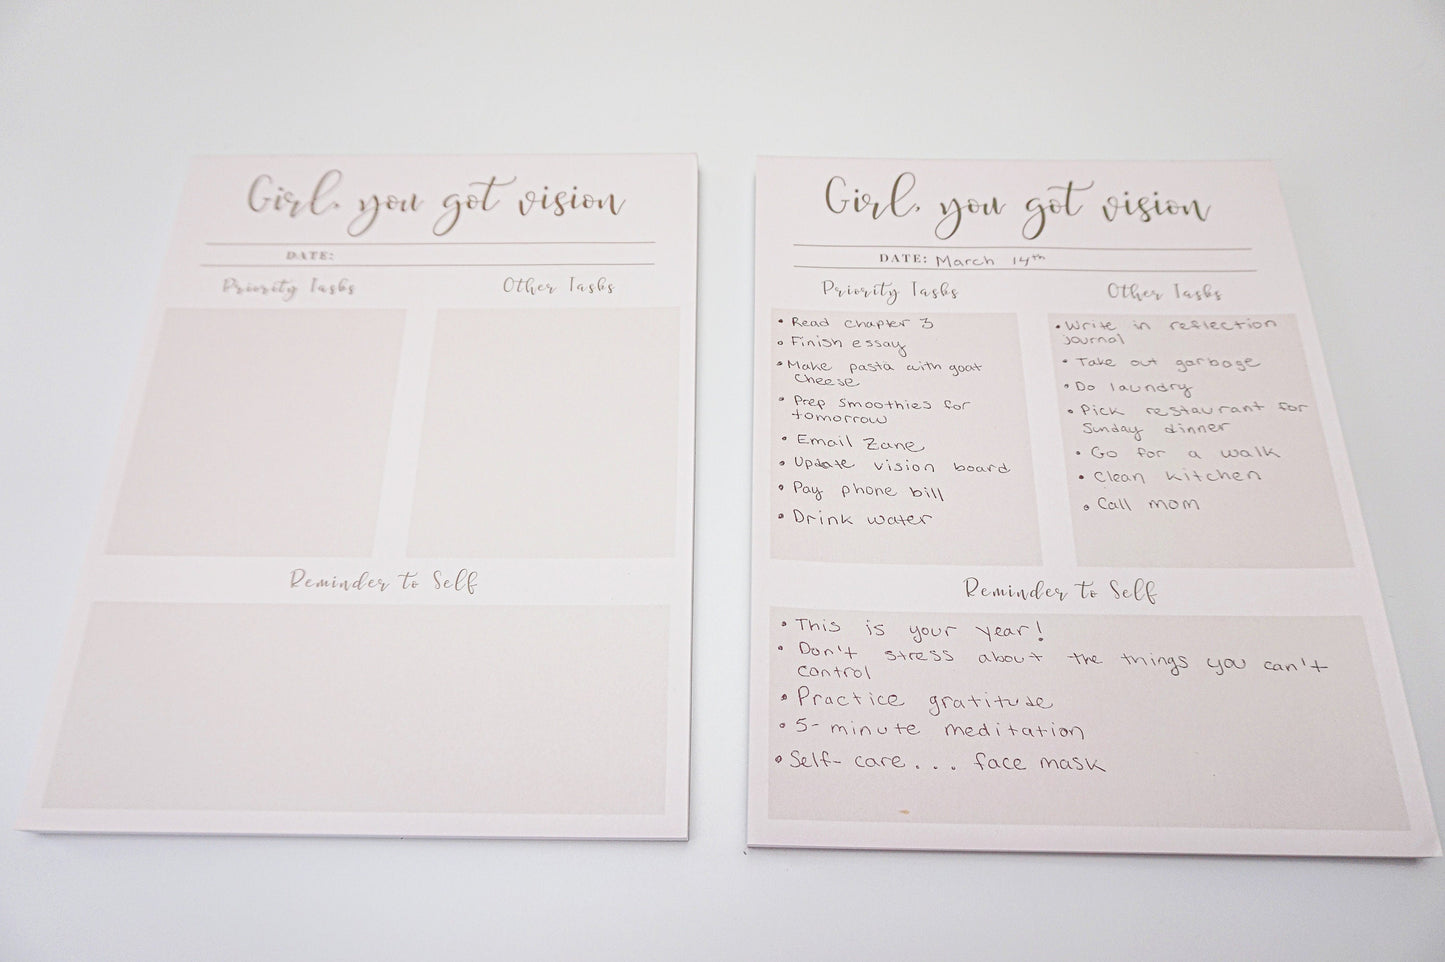 Girl, you got vision
DATE:
Priority Tasks
Other Tasks
Reminder to Self
Girl, you got vision
DATE: March 14th
Priority Tasks
• Read chapter 3
• Finish essay
• Make pasta with goat
cheese
• Prep smoothies for
tomorrow
• Email Zane
• Update vision board
• Pay phone bill
• Drink water
Other Tasks
• Write in reflection
journal
• Take out garbage
• Do laundry
• Pick restaurant for
Sunday dinner
• Go for a walk
• Clean kitchen
• Call mom
Reminder to Self
• This is your year!
• Don't stress about the things you can't
control
• Practice gratitude
• 5-minute meditation
• Self-care... face mask